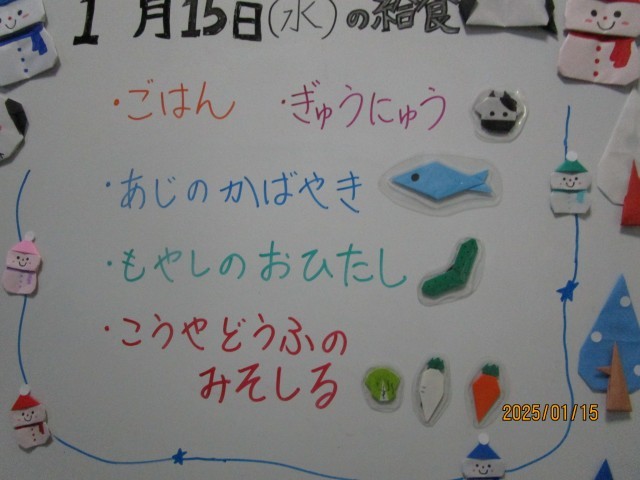 1月15日(水)の給食
・ごはん ・ぎゅうにゅう
・あじのかばやき
・もやしのおひたし
・こうやどうふの
みそしる
2025/01/15